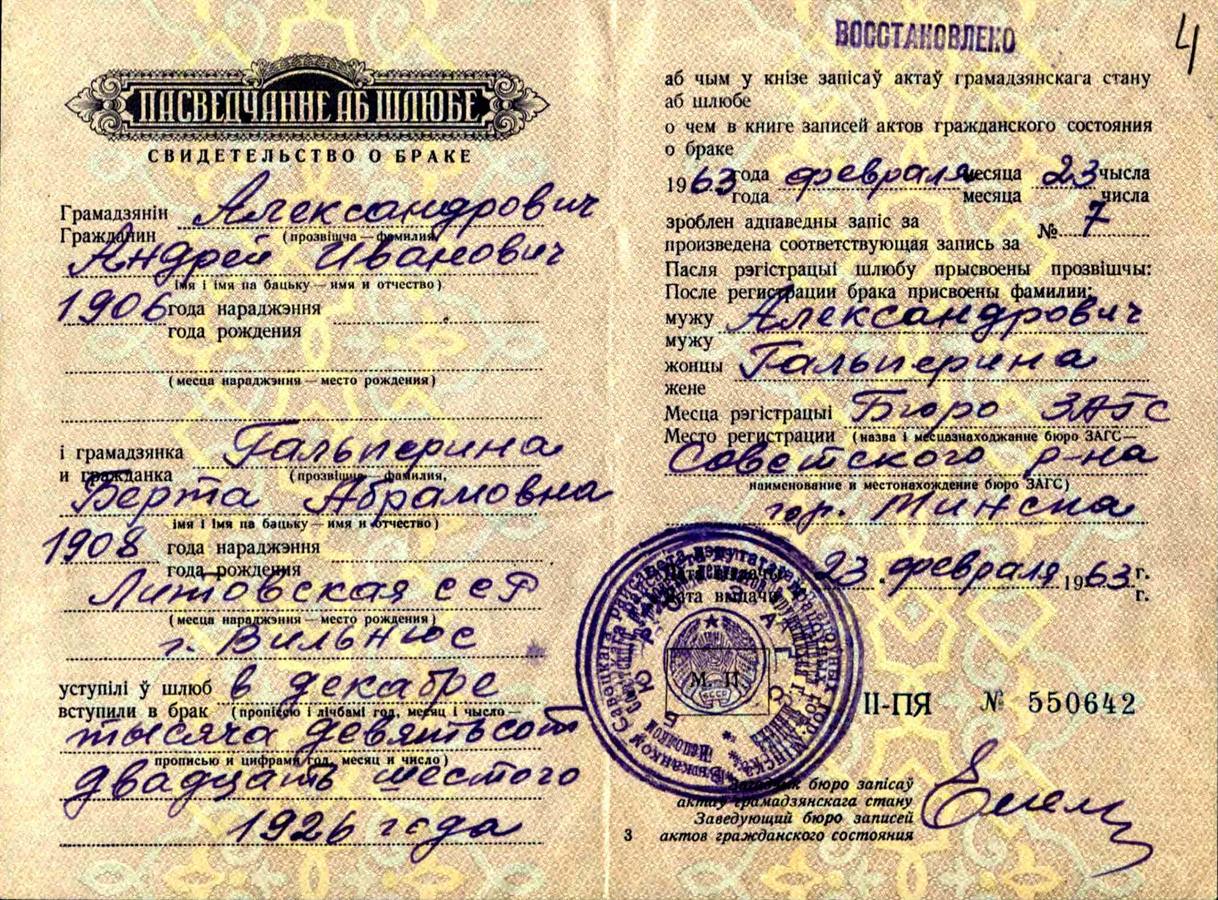 ПАСВЕДЧАННЕ АБ ШЛЮБЕ
СВИДЕТЕЛЬСТВО О БРАКЕ
Грамадзянін Александрович
Гражданин (прозвішча — фамилия,
Андрей Иванович
імя і імя па бацьку — имя и отчество)
1906 года нараджэння
года рождения
(месца нараджэння — место рождения)
і грамадзянка Гальперина
и гражданка (прозвішча — фамилия,
Берта Абрамовна
імя і імя па бацьку — имя и отчество)
1908 года нараджэння
года рождения
Литовская ССР
(месца нараджэння — место рождения)
г. Вильнюс
уступілі ў шлюб в декабре
вступили в брак (пропіссю і лічбамі год, месяц і чысло —
тысяча девятьсот
прописью и цифрами год, месяц и число)
двадцать шестого
1926 года
ВОССТАНОВЛЕНО
4
аб чым у кнізе запісаў актаў грамадзянскага стану
аб шлюбе
о чем в книге записей актов гражданского состояния
о браке
1963 года февраля месяца 23 чысла
года месяца числа
зроблен адпаведны запіс за
№ 7
произведена соответствующая запись за
Пасля рэгістрацыі шлюбу прысвоены прозвішчы:
После регистрации брака присвоены фамилии:
мужу Александрович
мужу
жонцы Гальперина
жене
Месца рэгістрацыі Бюро ЗАГС
Место регистрации (назва і месцазнаходжанне бюро ЗАГС—
Советского р-на
наименование и местонахождение бюро ЗАГС)
гор. Минска
Дата выдачы 23 февраля 1963 г.
Дата выдачи г.
М. П.
II-ПЯ № 550642
Загадчык бюро запісаў
актаў грамадзянскага стану
Заведующий бюро записей
3 актов гражданского состояния